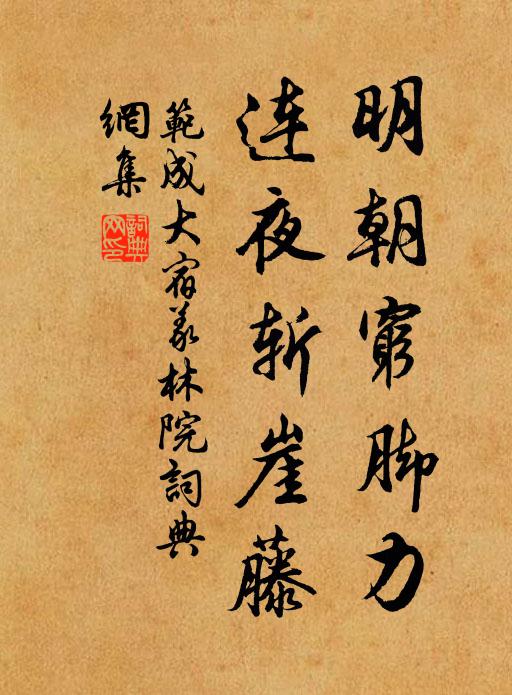 明朝窮脚力
連夜斩崖藤
範成大宿義林院詞典
網集
詞典
网印